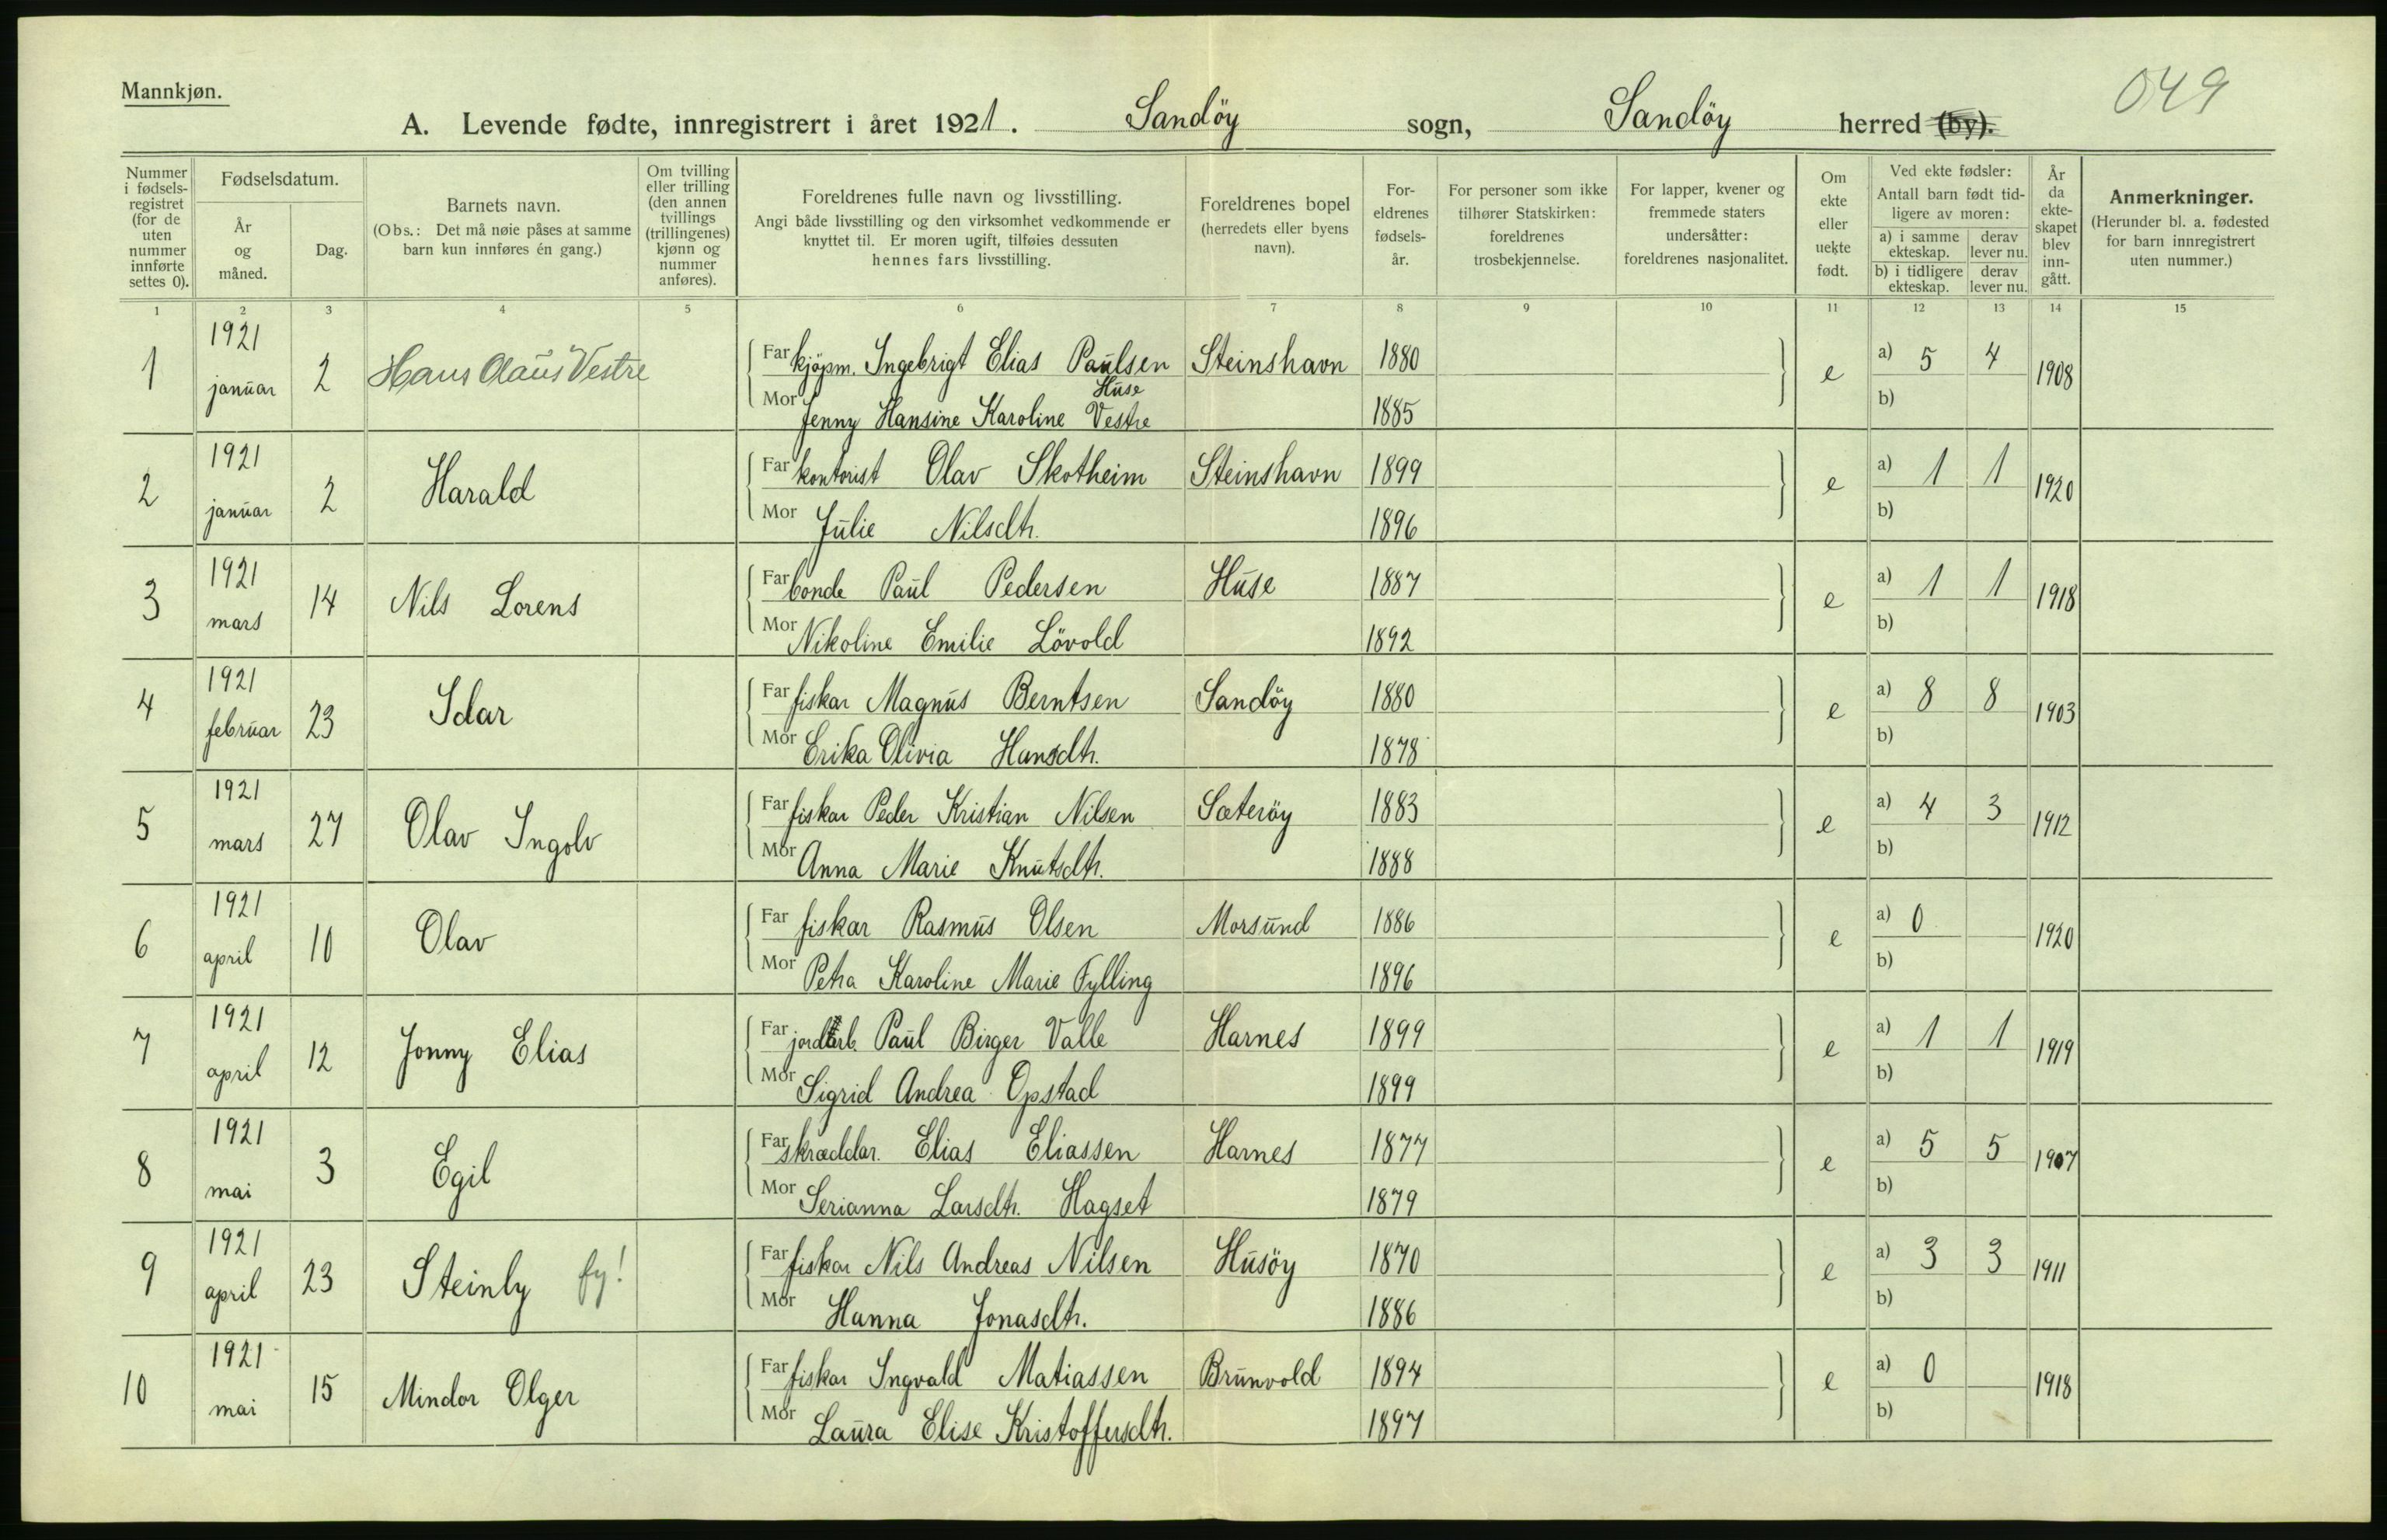 Mannkjøn.
049
A. Levende fødte, innregistrert i året 1921. Sandöy sogn, Sandöy herred (by).
Nummer i fødsels-registret (for de uten nummer innførte settes 0).
Fødselsdatum.
År og måned.
Dag.
Barnets navn.
(Obs.: Det må nøie påses at samme barn kun innføres én gang.)
Om tvilling eller trilling (den annen tvillings (trillingenes) kjønn og nummer anføres).
Foreldrenes fulle navn og livsstilling.
Angi både livsstilling og den virksomhet vedkommende er knyttet til. Er moren ugift, tilføies dessuten hennes fars livsstilling.
Foreldrenes bopel (herredets eller byens navn).
For-eldrenes fødsels-år.
For personer som ikke tilhører Statskirken: foreldrenes trosbekjennelse.
For lapper, kvener og fremmede staters undersåtter: foreldrenes nasjonalitet.
Om ekte eller uekte født.
Ved ekte fødsler:
Antall barn født tid-ligere av moren:
a) i samme ekteskap. derav lever nu.
b) i tidligere ekteskap. derav lever nu.
År da ekte-skapet blev inn-gått.
Anmerkninger.
(Herunder bl. a. fødested for barn innregistrert uten nummer.)
1 2 3 4 5 6 7 8 9 10 11 12 13 14 15
1 1921 januar 2 Hans Olaus Vestre
Far kjöpm. Ingebrigt Elias Paulsen Steinshavn 1880 e a) 5 4 1908
Huse
Mor Jenny Hansine Karoline Vestre 1885 b)
2 1921 januar 2 Harald
Far kontorist Olav Skotheim Steinshavn 1899 e a) 1 1 1920
Mor Julie Nilsdtr. 1896 b)
3 1921 mars 14 Nils Lorens
Far bonde Paul Pedersen Huse 1887 e a) 1 1 1918
Mor Nikoline Emilie Lövold 1892 b)
4 1921 februar 23 Idar
Far fiskar Magnus Berntsen Sandöy 1880 e a) 8 8 1903
Mor Erika Olivia Hansdtr. 1878 b)
5 1921 mars 27 Olav Ingolv
Far fiskar Peder Kristian Nilsen Sæteröy 1883 e a) 4 3 1912
Mor Anna Marie Knutsdtr. 1888 b)
6 1921 april 10 Olav
Far fiskar Rasmus Olsen Morsund 1886 e a) 0 1920
Mor Petra Karoline Marie Fylling 1896 b)
7 1921 april 12 Jonny Elias
Far jordarb. Paul Birger Valle Harnes 1899 e a) 1 1 1919
Mor Sigrid Andrea Opstad 1899 b)
8 1921 mai 3 Egil
Far skræddar. Elias Eliassen Harnes 1877 e a) 5 5 1907
Mor Serianna Larsdtr. Hagset 1879 b)
9 1921 april 23 Steinly fy!
Far fiskar Nils Andreas Nilsen Husöy 1870 e a) 3 3 1911
Mor Hanna Jonasdtr. 1886 b)
10 1921 mai 15 Mindor Olger
Far fiskar Ingvald Matiassen Brunvold 1894 e a) 0 1918
Mor Laura Elise Kristoffersdtr. 1897 b)